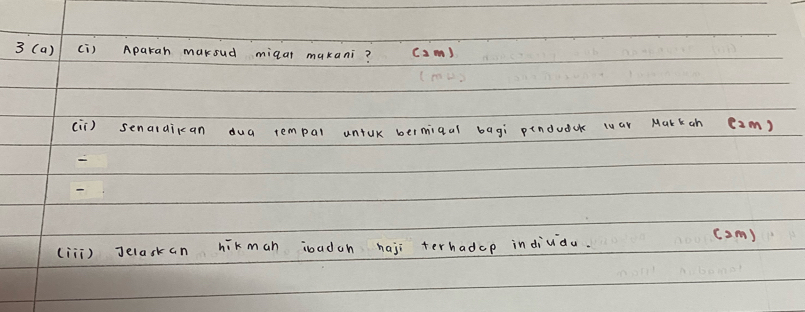 3 (a) (i) Apakah maksud miqat makani ? (2m)
(ii) Senaraikan dua tempat untuk bermiqat bagi penduduk luar Makkah (2m)
-
-
(iii) Jelaskan hikmah ibadah haji terhadap individu. (2m)